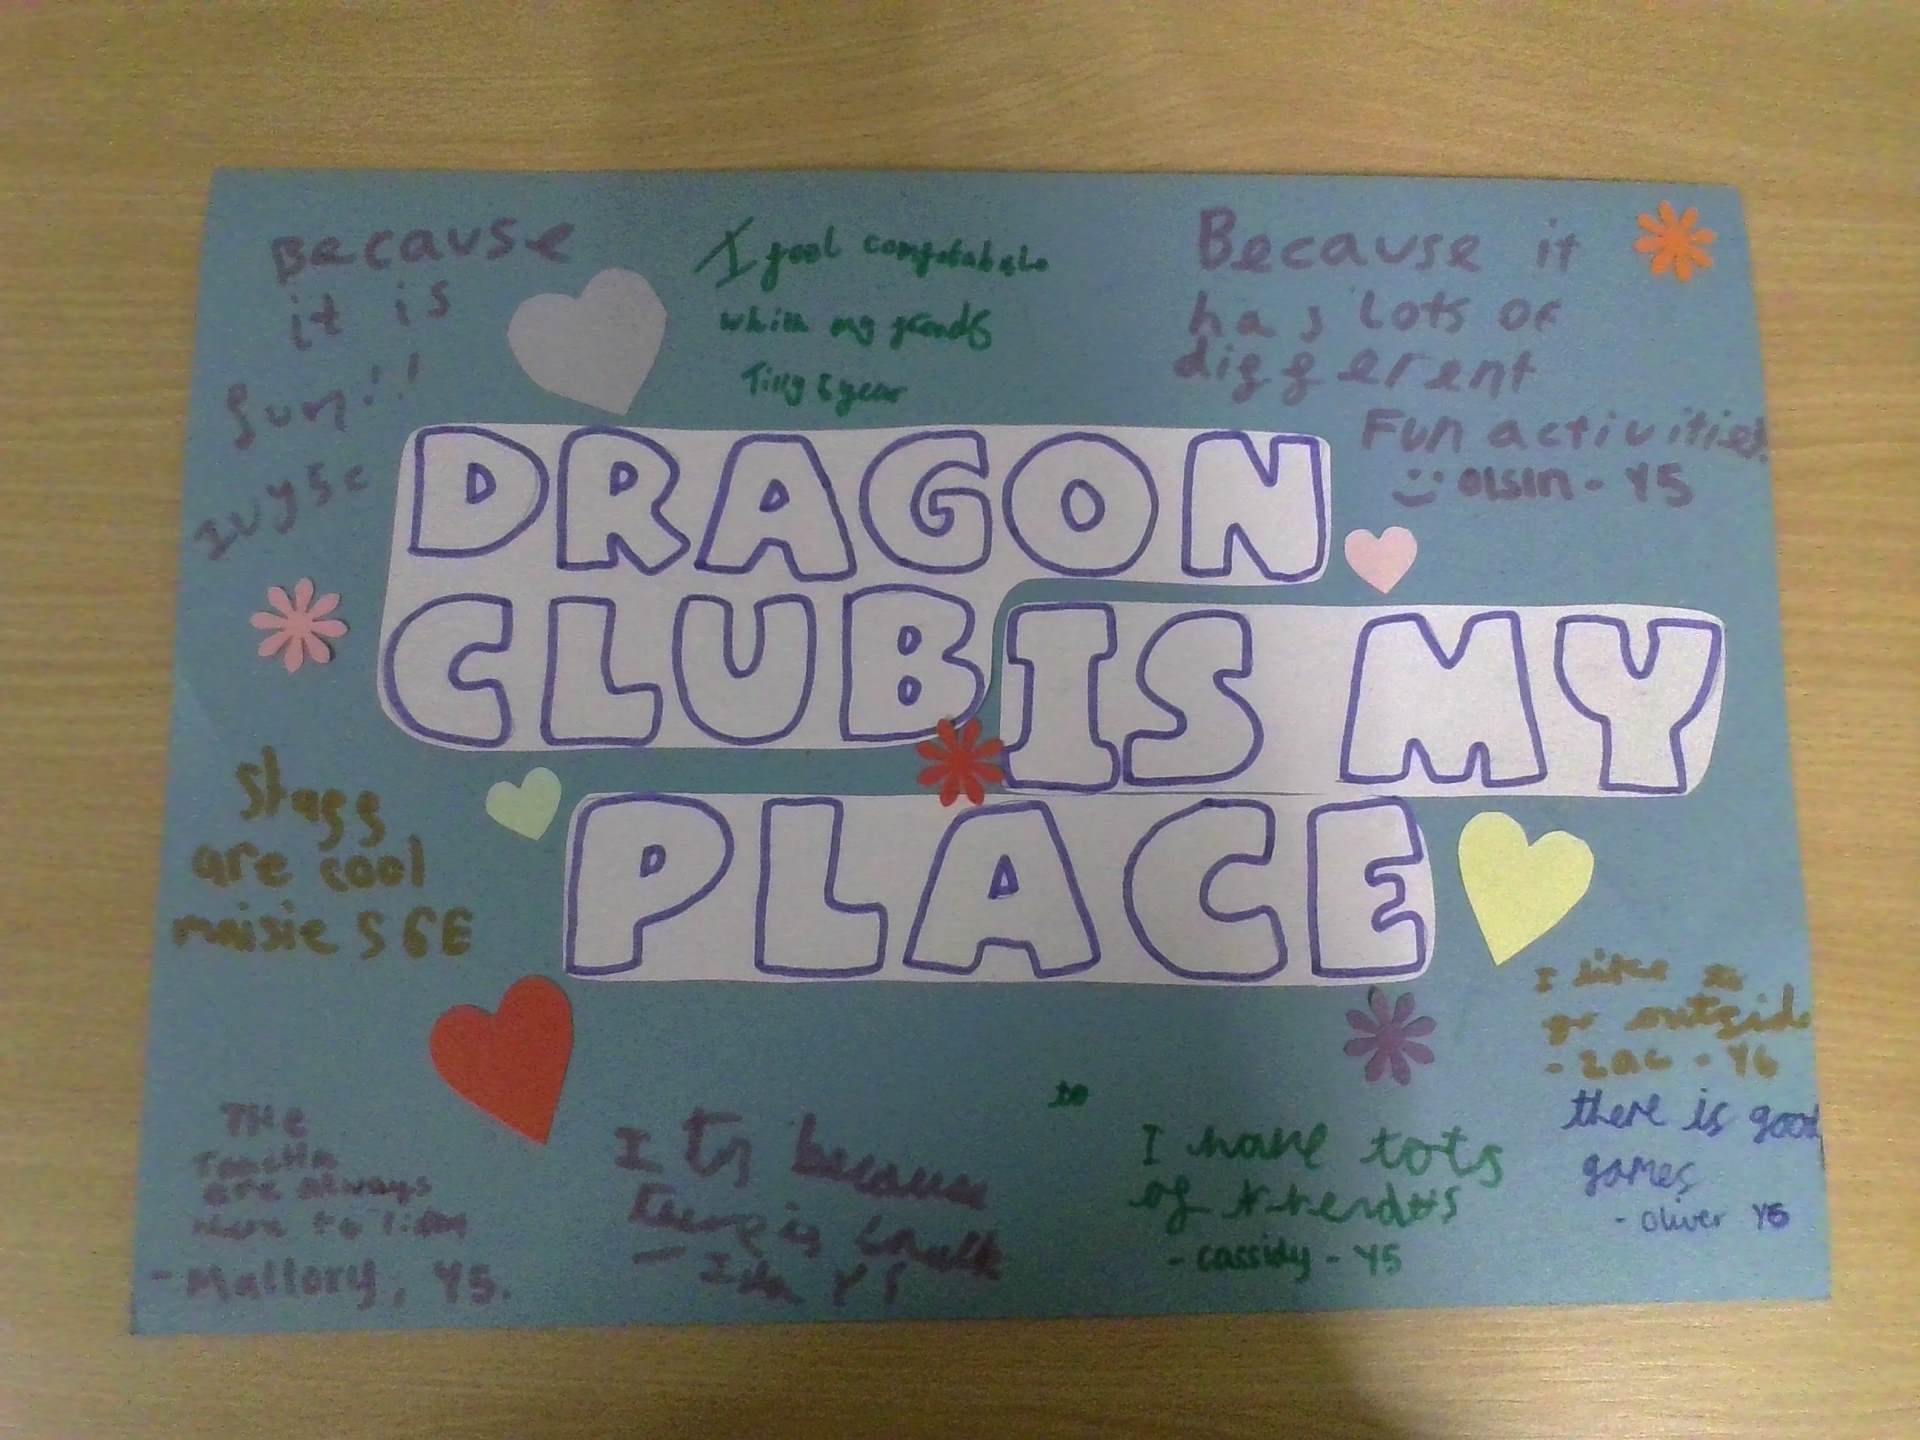 Because
it is
fun!!
I feel comfortable
my
Tilly
Because it
has lots of
different
Fun activities!
oisin - Y5
DRAGON
CLUB IS MY
PLACE
Staff
are cool
maisie
I like to
go outside
- zac - Y6
there is good
games
- oliver Y5
The
are always
here to
- Mallory, Y5.
to
I Ts because
there is
I have lots
of
- cassidy - Y5